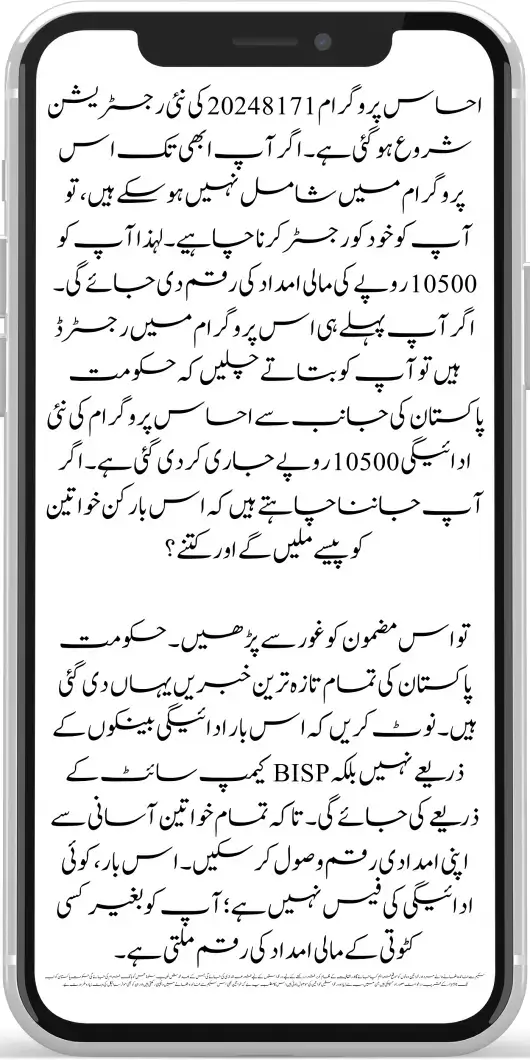 احساس پروگرام 20248171 کی نئی رجسٹریشن
شروع ہو گئی ہے۔ اگر آپ ابھی تک اس
پروگرام میں شامل نہیں ہو سکے ہیں، تو
آپ کو خود کو رجسٹر کرنا چاہیے۔ لہذا آپ کو
10500 روپے کی مالی امداد کی رقم دی جائے گی۔
اگر آپ پہلے ہی اس پروگرام میں رجسٹرڈ
ہیں تو آپ کو بتاتے چلیں کہ حکومت
پاکستان کی جانب سے احساس پروگرام کی نئی
ادائیگی 10500 روپے جاری کر دی گئی ہے۔ اگر
آپ جاننا چاہتے ہیں کہ اس بار کن خواتین
کو پیسے ملیں گے اور کتنے؟
تو اس مضمون کو غور سے پڑھیں۔ حکومت
پاکستان کی تمام تازہ ترین خبریں یہاں دی گئی
ہیں۔ نوٹ کریں کہ اس بار ادائیگی بینکوں کے
ذریعے نہیں بلکہ BISP کیمپ سائٹ کے
ذریعے کی جائے گی۔ تاکہ تمام خواتین آسانی سے
اپنی امدادی رقم وصول کر سکیں۔ اس بار، کوئی
ادائیگی کی فیس نہیں ہے؛ آپ کو بغیر کسی
کٹوتی کے مالی امداد کی رقم ملتی ہے۔